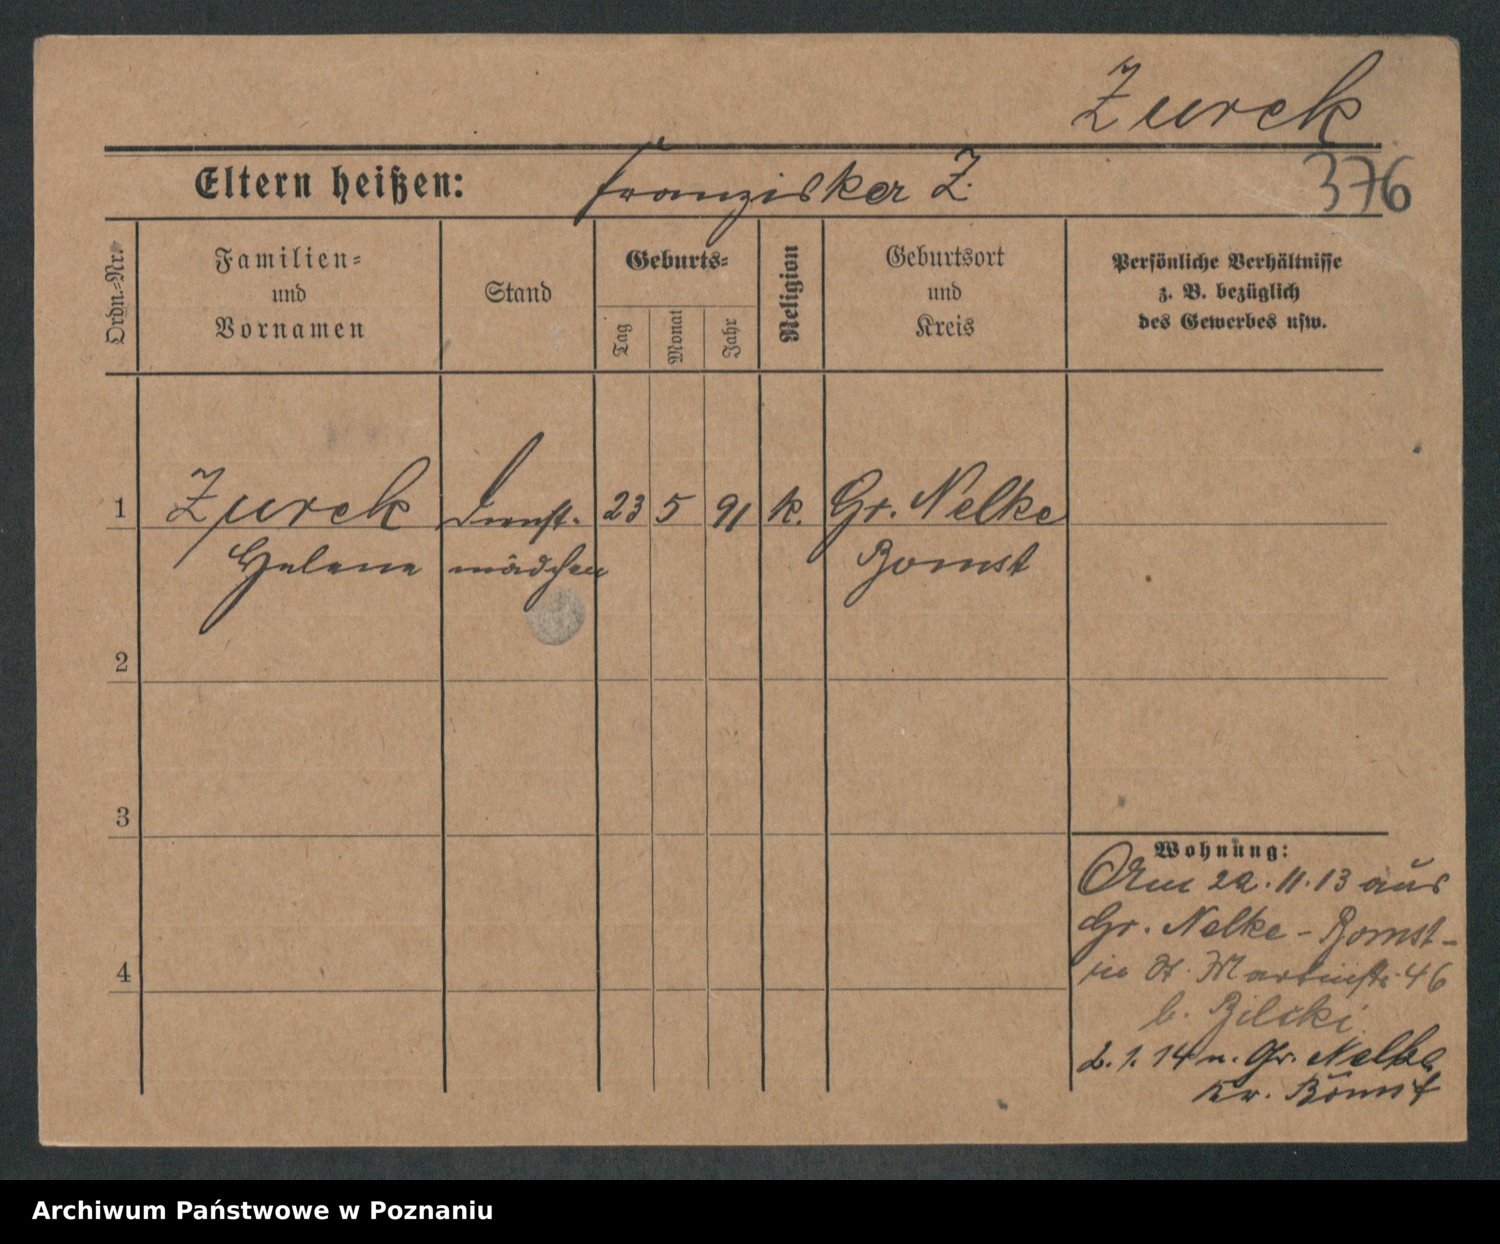 Zurek
Eltern heißen: Franziska Z.
376
Ordn.-Nr.
Familien-
und
Vornamen
Stand
Geburts-
Tag
Monat
Jahr
Religion
Geburtsort
und
Kreis
Persönliche Verhältnisse
z. B. bezüglich
des Gewerbes usw.
1 Zurek Dienst- 23 5 91 k. Gr. Nelke
Helene mädchen Bomst
2
3
4
Wohnung:
Am 22.11.13 aus
Gr. Nelke - Bomst -
in St. Martinstr. 46
b. Bilski
2.1.14 n. Gr. Nelke
Kr. Bomst
Archiwum Państwowe w Poznaniu